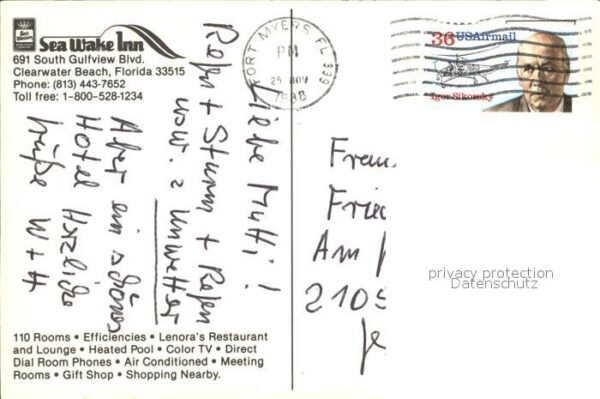 Best Western
Sea Wake Inn
691 South Gulfview Blvd.
Clearwater Beach, Florida 33515
Phone: (813) 443-7652
Toll free: 1-800-528-1234
Liebe Mutti!
Regen + Sturm + Regen
usw. = Unwetter
Aber ein schönes
Hotel Herzliche
Grüße W + H
110 Rooms • Efficiencies • Lenora's Restaurant
and Lounge • Heated Pool • Color TV • Direct
Dial Room Phones • Air Conditioned • Meeting
Rooms • Gift Shop • Shopping Nearby.
FORT MYERS, FL 339
PM
25 NOV
1988
36 USAirmail
Igor Sikorsky
Frau
Fried
Am
2105
privacy protection
Datenschutz